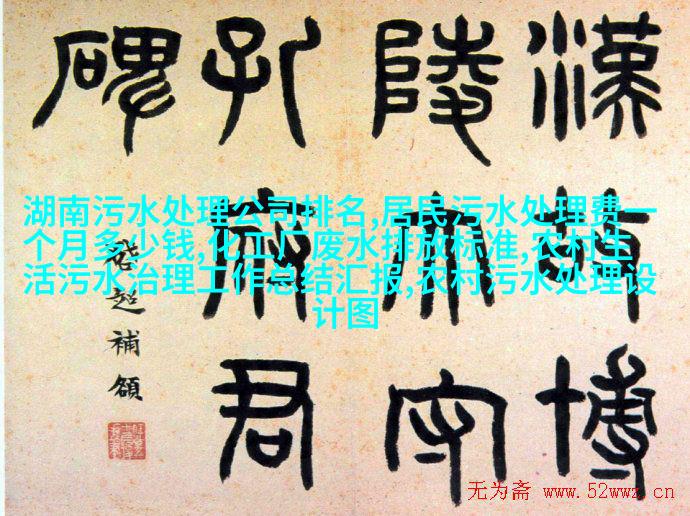 漢故博
陵太守
孔府君
碑
啓超補額
湖南污水处理公司排名,居民污水处理费一
个月多少钱,化工厂废水排放标准,农村生
活污水治理工作总结汇报,农村污水处理设
计图
无为斋 www.52wwz.cn